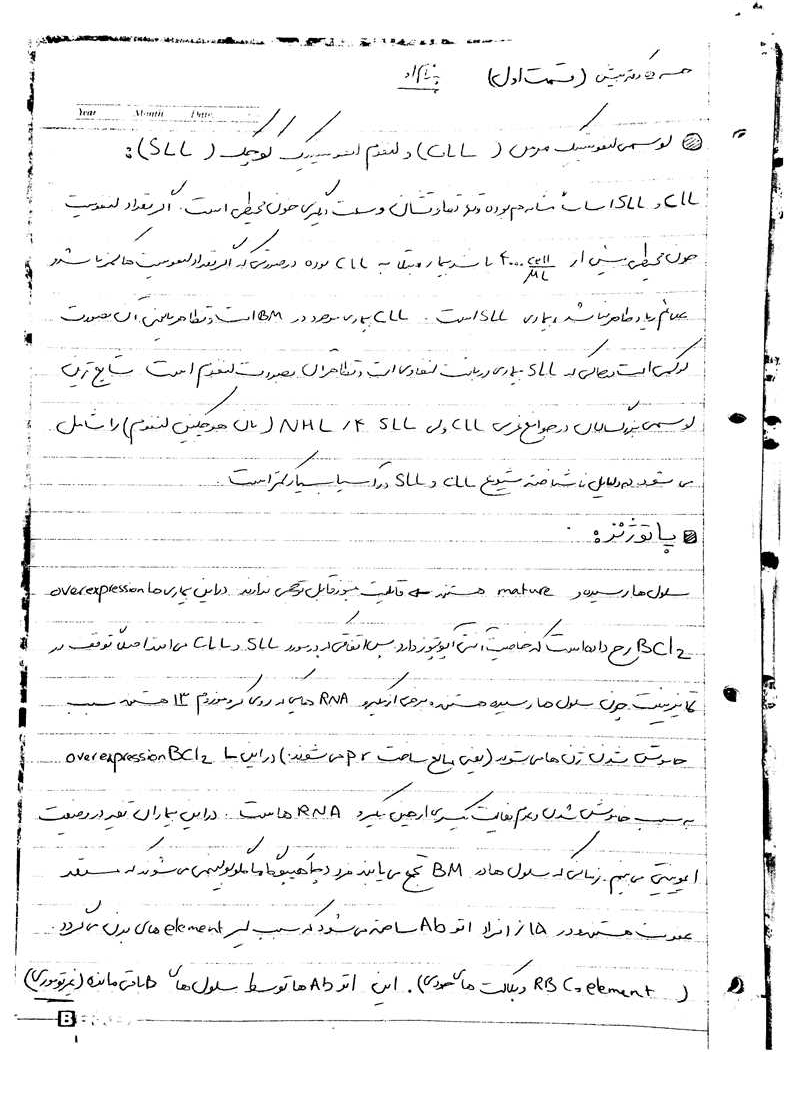 جلسه ۵ دکتر بینش (قسمت اول) بنام او
Year Month Date
لوسمی لنفوسیتیک مزمن (CLL) و لنفوم لنفوسیتیک کوچک (SLL):
CLL و SLL اساساً مشابه هم بوده و تفاوتشان وسعت درگیری خون محیطی است. اگر تعداد لنفوسیت
خون محیطی بیش از ۴۰۰۰ cell/ML باشد بیمار مبتلا به CLL بوده درصورتی که اگر تعداد لنفوسیت ها کمتر باشد و
علائم زیاد ظاهر نباشد، بیماری SLL است. CLL بیماری موجود در BM است و تظاهر بالینی آن بصورت
لوکمی است درحالی که SLL بیماری در بافت لنفاوی است و تظاهر آن بصورت لنفوم است شایع ترین
لوسمی بزرگسالان در جوامع غربی CLL ولی SLL ۴٪ NHL (نان هوچکین لنفوم) را شامل
می شود به دلایل ناشناخته شیوع CLL و SLL در آسیا بسیار کمتر است.
پاتوژنز:
سلول ها رسیده و mature هستند قابلیت میتوز قابل توجهی ندارند در این بیماری ها overexpression
BCl2 رخ داده است که خاصیت آنتی آپوپتوز دارد پس اتفاقی که در مورد SLL و CLL می افتد اصلاً توقف در
تمایز نیست چون سلول ها رسیده هستند. برخی از میکرو RNA هایی که روی کروموزوم ۱۳ هستند سبب
خاموش شدن ژن ها می شوند (یعنی مانع ساخت pr می شوند) در این ها overexpression BCl2
به سبب خاموش شدن و عدم فعالیت یکسری از همین میکرو RNA هاست. در این بیماران تغییر در وضعیت
ایمونیتی می بینیم. زمانی که سلول ها در BM تجمع می یابند فرد دچار هیپوگاماگلوبولینمی می شود که مستعد
عفونت هستند و در ۱۵٪ از افراد اتو Ab ساخته می شود که سبب لیز element های بدن می گردد.
(RBC element و پلاکت های خودی). این اتو Ab ها توسط سلول های B باقی مانده (غیرتوموری)
B
۱